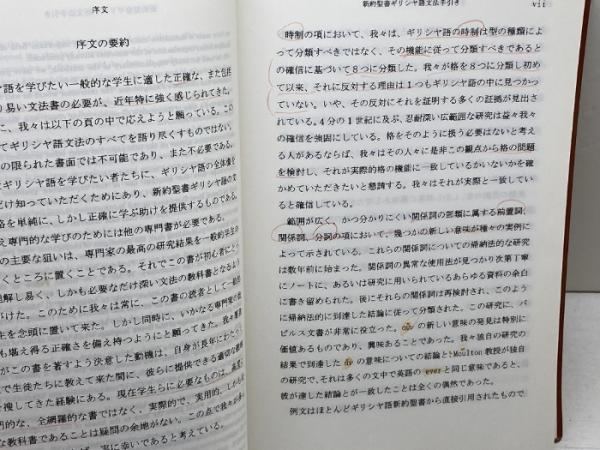 序文
序文の要約
ヤ語を学びたい一般的な学生に適した正確な、また包括
り易い文法書の必要が、近年特に強く感じられてきた。
に、我々は以下の頁の中で応えようと願っている。この
てギリシヤ語文法のすべてを語り尽くすものではない。
の限られた書面では不可能であり、また不必要である。
はギリシヤ語を学びたい者たちに、ギリシヤ語の全体像を
だけ知っていただくためにあり、新約聖書ギリシヤ語の文
格を単純に、しかし正確に学ぶ助けを提供するものである。
え専門的な学びのためには他の専門書が必要である。
の主要な狙いは、専門家の最高の研究結果を一般的学生の
くところに置くことである。それでこの書が初心者にとっ
理解し易く、しかも必要なだけ深い文法の教科書となるよう
がけた。このために我々は常に、この書の読者として一般的
生を念頭に置いて来た。しかし同時に、いかなる専門家の
も堪え得る正確さを備え持つようにと願っている。
がこの書を著すよう決意した動機は、自身が長年にわたって
で生徒たちに教えて来た間に、彼らに提供できる適切な
を捜してきた経験にある。現在学生らに必要なものは、
的な、全網羅的な書ではなく、実際的で、実用的、しかも
な教科書であることは疑問の余地がない。この点で我々が
ば、真に幸いであると考えている。
新約聖書ギリシヤ語文法手引き
vii
時制の項において、我々は、ギリシヤ語の時制は型の種類によ
って分類すべきではなく、その機能に従って分類すべきであると
の確信に基づいて８つに分類した。我々が格を８つに分類し初め
て以来、それに反対する理由は１つもギリシヤ語の中に見つかっ
ていない。いや、その反対にそれを証明する多くの証拠が見出さ
れている。４分の１世紀に及ぶ、忍耐深い広範囲な研究は益々我々
の確信を強固にしている。格をそのように扱う必要はないと考え
る人があるならば、我々はその人々に是非この観点から格の問題
を検討し、それが実際的格の機能に一致しているかいないかを確
かめていただきたいと懇請する。我々はそれが実際と一致してい
ると確信している。
範囲が広く、かつ分かりにくい関係詞の部類に属する前置詞、
関係詞、分詞の項において、幾つかの新しい意味が種々の実例に
よって示されている。これらの関係詞についての帰納法的な研究
は数年前に始まった。関係詞の異常な使用法が見つかり次第丁寧
にノートに、あるいは研究に用いられているあらゆる資料の余白
に書き留められた。後にそれらの関係詞は再検討され、このよう
に帰納法的に到達した結論に従って分類された。この研究に、パ
ピルス文書が非常に役立った。οὖν の新しい意味の発見は特別に
価値あるものであり、興味あることであった。我々独自の研究の
結果で到達した ἄν の意味についての結論と Moulton 教授が独自
の研究で、それは多くの文中で英語の ever と同じ意味であると、
彼が達した結論とが一致したことは全くの偶然であった。
例文はほとんどギリシヤ語新約聖書から直接引用されたもので